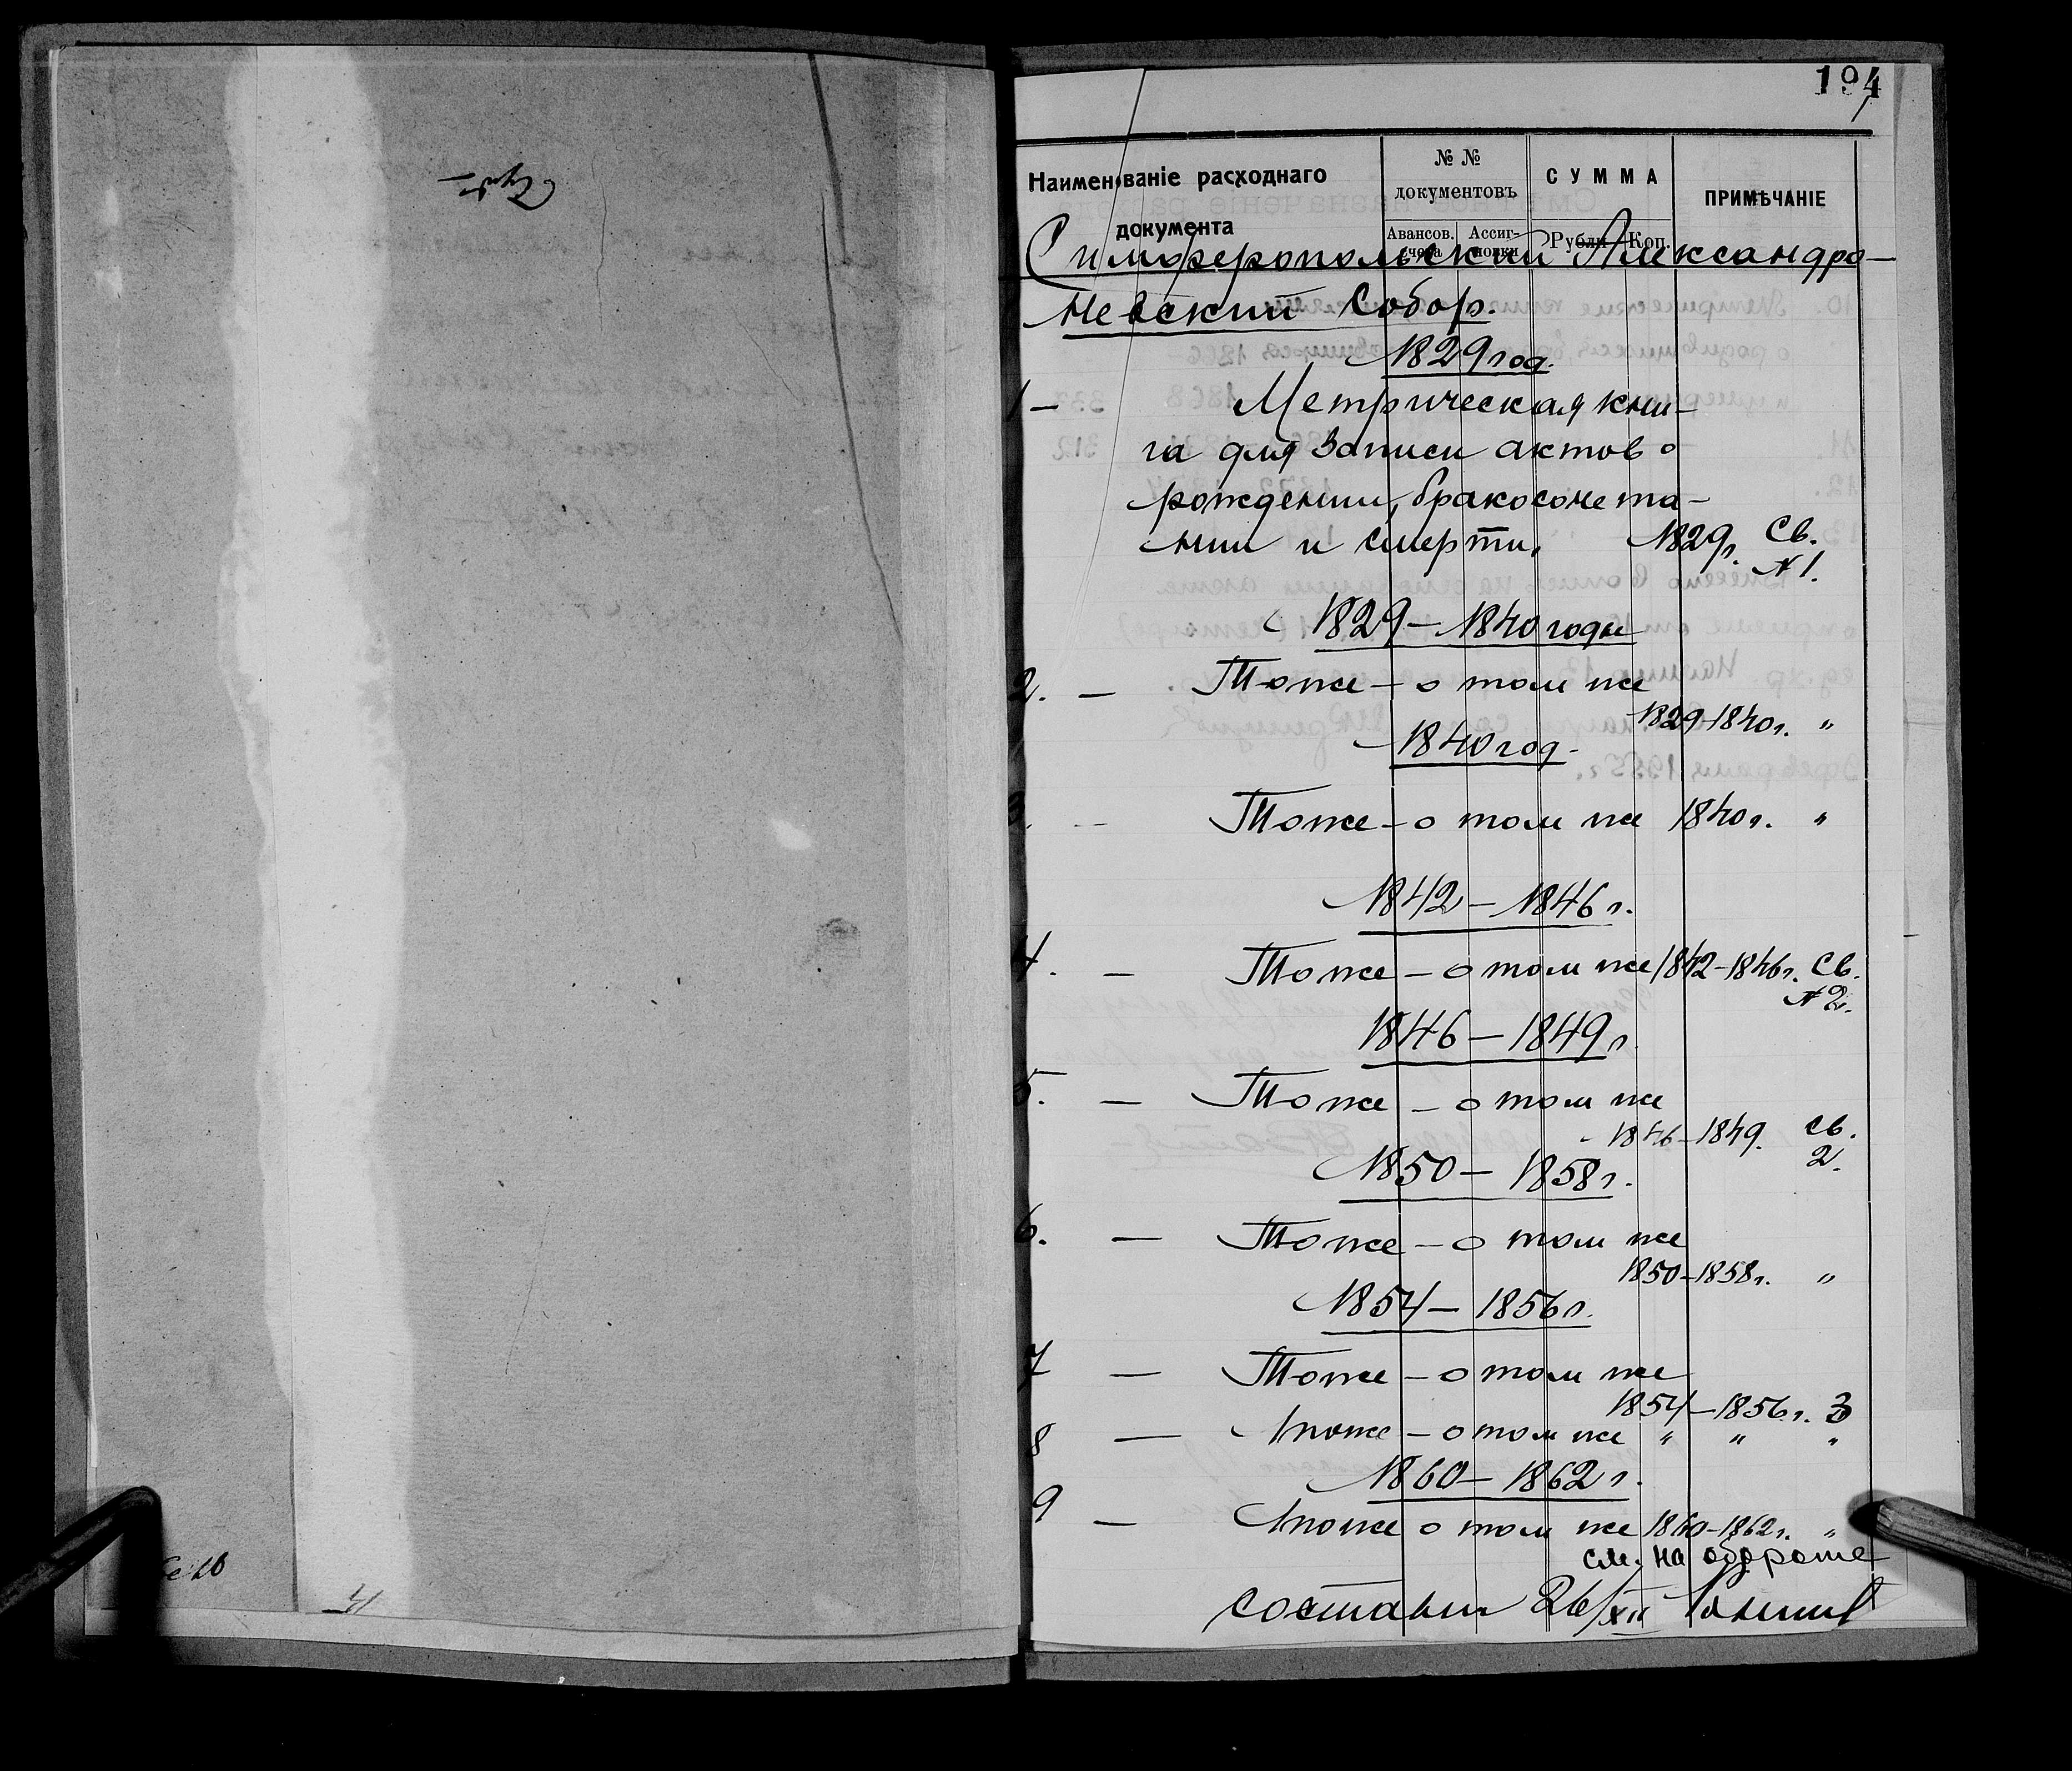 194
Наименованіе расходнаго
документа
№ №
документовъ
Авансов. счета
Ассиг-новки
СУММА
Рубли Коп.
ПРИМѢЧАНІЕ
Симферопольский Александро-
Невский Собор.
1829 год.
1 — Метрическая кни-
га для записи актов о
рождении, бракосочета-
нии и смерти, 1829 г. Св.
№ 1.
1829 – 1840 годы
2. — Тоже – о том же
1829-1840 г. "
1840 год.
3. — Тоже – о том же 1840 г. "
1842 – 1846 г.
4. — Тоже – о том же 1842-1846 г. Св.
№ 2.
1846 – 1849 г.
5. — Тоже – о том же
1846 – 1849. св.
2.
1850 – 1858 г.
6. — Тоже – о том же
1850-1858 г. "
1854 – 1856 г.
7 — Тоже – о том же
1854 – 1856 г. 3
8 — Тоже – о том же " " "
1860 – 1862 г.
9 — Тоже о том же 1860-1862 г. "
см. на обороте
составил 26/XII